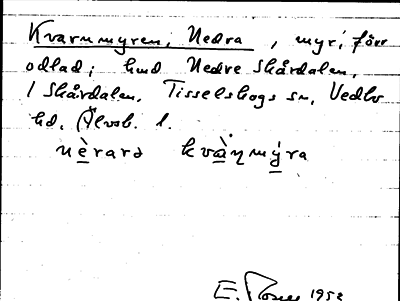 Kvarnmyren, Nedra, myr, förr
odlad; hmd Nedre Skårdalen,
1 Skårdalen, Tisselskogs sn, Vedbo
hd, Älvsb. l.
nèrarə kvàṇmýra
E. 1952